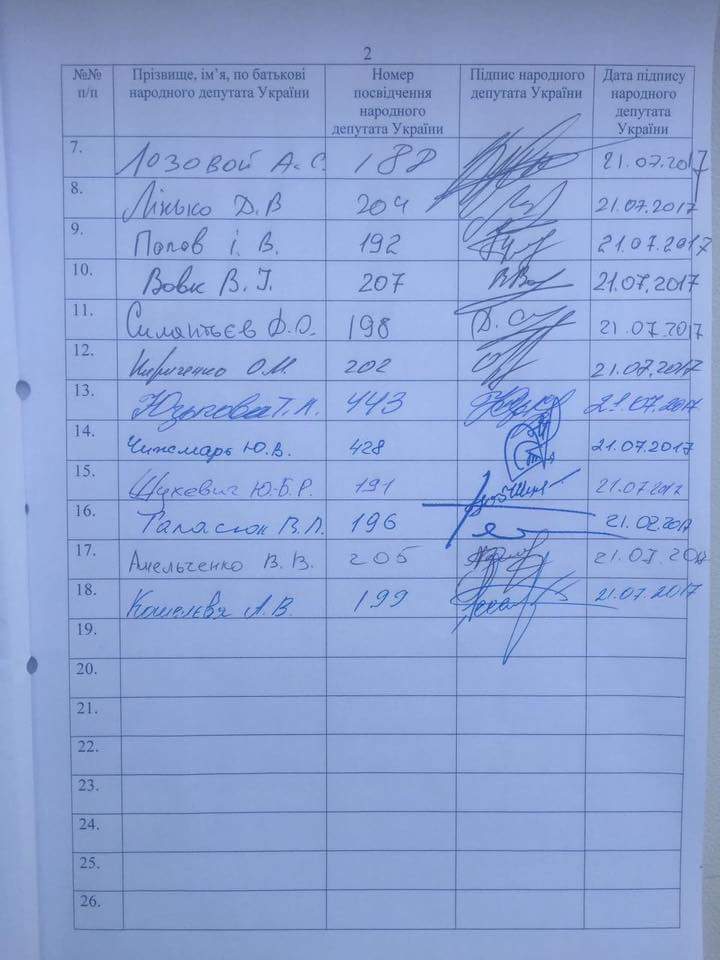 2
№№ п/п Прізвище, ім’я, по батькові народного депутата України Номер посвідчення народного депутата України Підпис народного депутата України Дата підпису народного депутата України
7. Лозовой А.С. 188 21.07.2017
8. Лінько Д.В 204 21.07.2017
9. Попов І. В. 192 21.07.2017
10. Вовк В.І. 207 21.07.2017
11. Силантьєв Д.О. 198 21.07.2017
12. Кириченко О.М. 202 21.07.2017
13. Юзькова Т.Л. 443 21.07.2017
14. Чижмарь Ю.В. 428 21.07.2017
15. Шухевич Ю-Б.Р. 191 21.07.2017
16. Галасюк В.В. 196 21.07.2017
17. Амельченко В. В. 205 21.07.2017
18. Кошелєва А.В. 199 21.07.2017
19.
20.
21.
22.
23.
24.
25.
26.